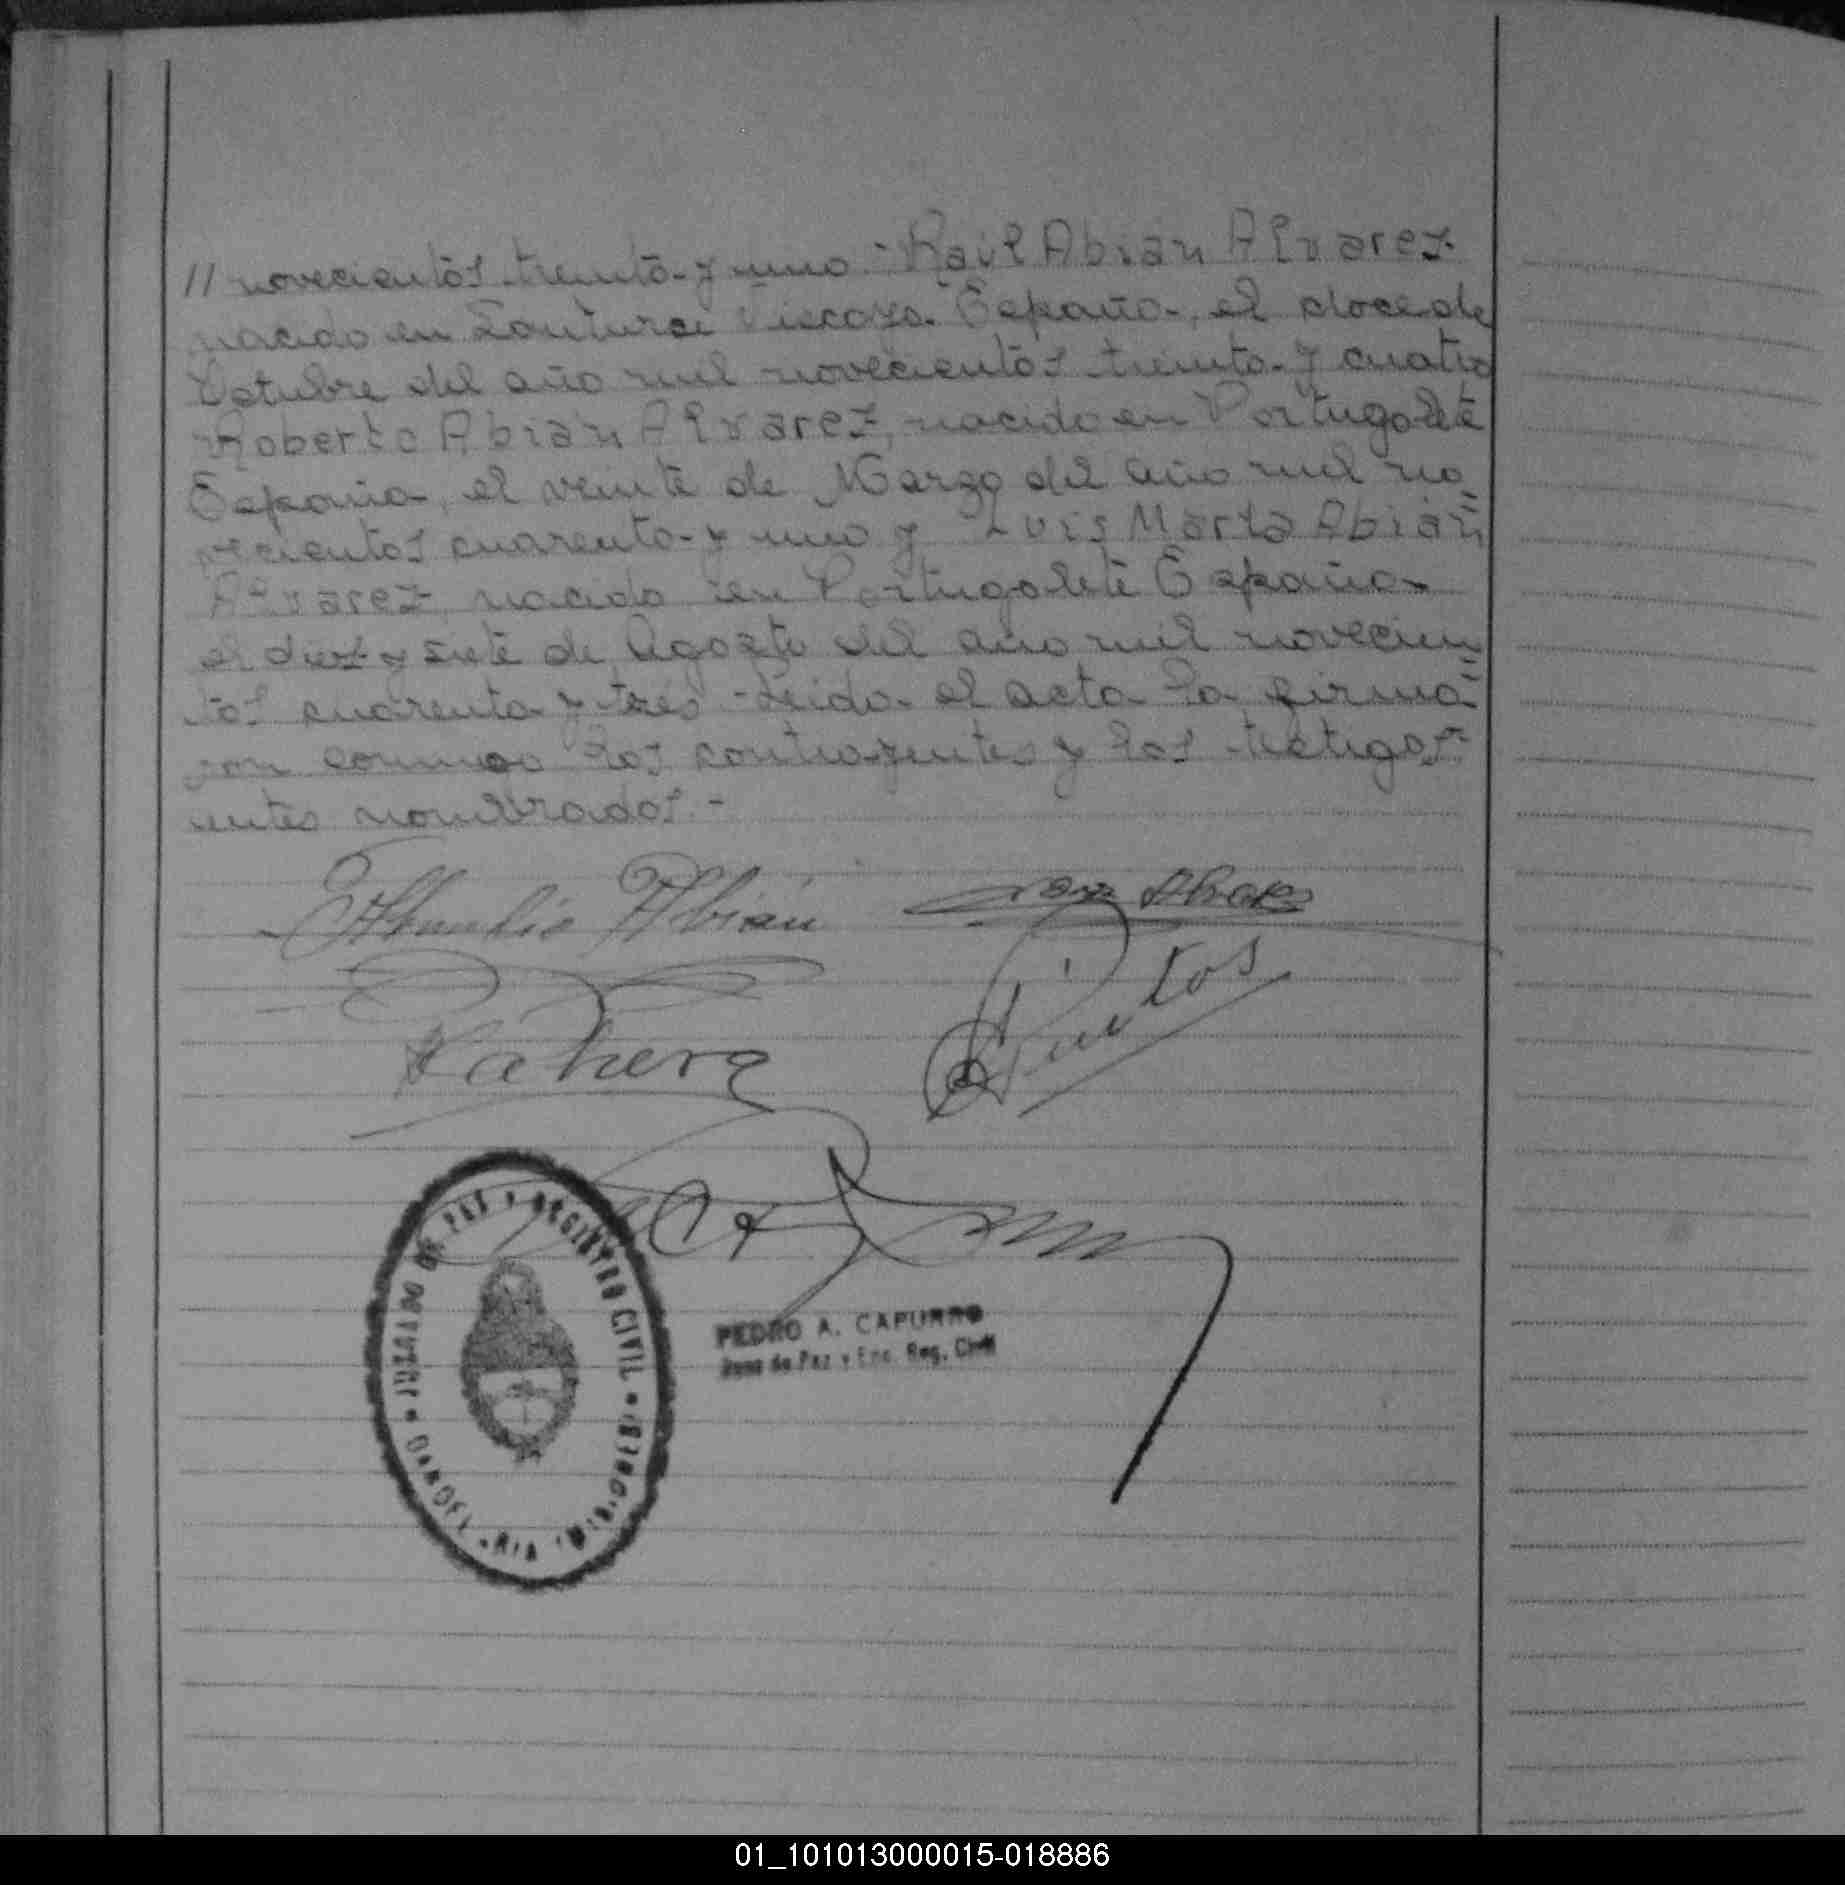 // novecientos treinta y uno - Raúl Abian Alvarez
nacido en Santurce Viscaya España, el doce de
Octubre del año mil novecientos treinta y cuatro
Roberto Abian Alvarez, nacido en Portugalete
España, el veinte de Marzo del año mil no
vecientos cuarenta y uno y Luis María Abián
Alvarez nacido en Portugalete España
el diez y siete de Agosto del año mil novecien
tos cuarenta y tres - Leida el acta la firma
ron conmigo los contrayentes y los testigos
antes nombrados. -
Abián
Cahera
Pintos
DE PAZ • REGISTRO CIVIL
PEDRO A. CAPURRO
Juez de Paz y Enc. Reg. Civil
01_101013000015-018886